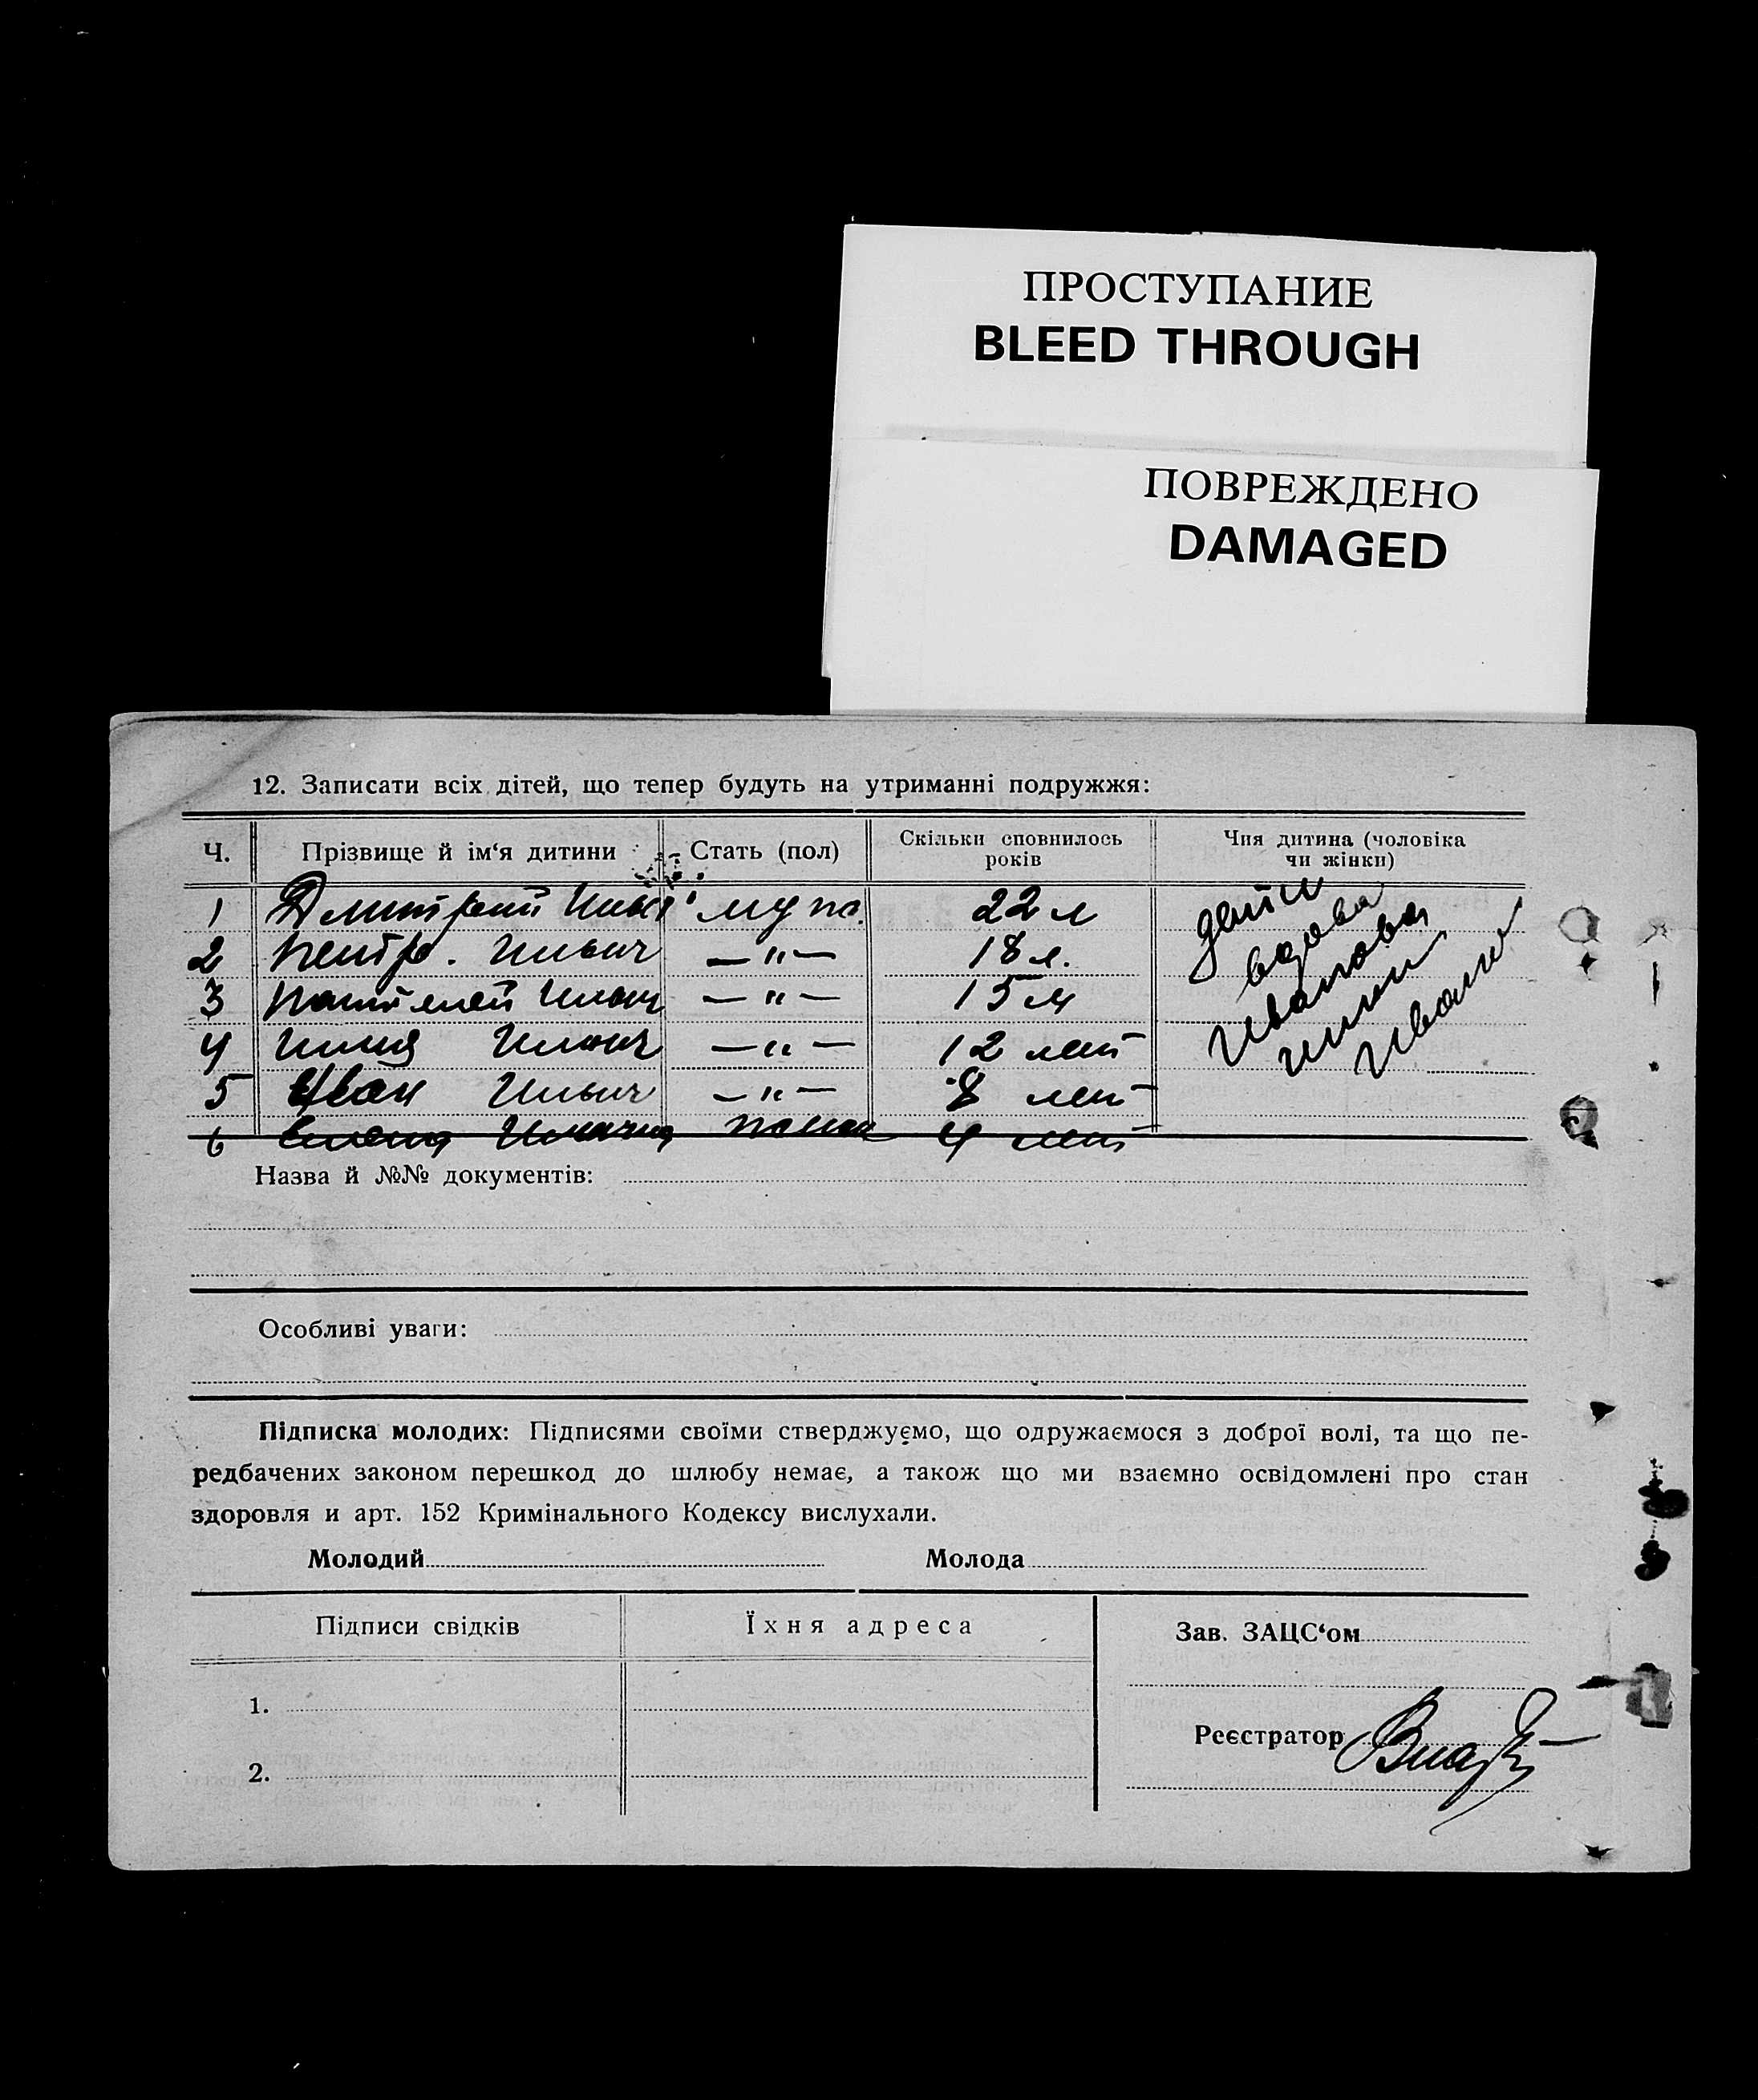 ПРОСТУПАНИЕ
BLEED THROUGH
ПОВРЕЖДЕНО
DAMAGED
12. Записати всіх дітей, що тепер будуть на утриманні подружжя:
Ч. Прізвище й ім‘я дитини Стать (пол) Скільки сповнилось років Чия дитина (чоловіка чи жінки)
1 Дмитрий 22 л
2 Петро. Ильич —"— 18 л.
3 Пантелей Ильич —"— 15 л
4 Илия Ильич —"— 12 лет
5 Иван Ильич —"— 8 лет
6 4 лет
дети
вдова
Иванова
Назва й №№ документів:
Особливі уваги:
Підписка молодих: Підписями своїми стверджуємо, що одружаємося з доброї волі, та що пе-
редбачених законом перешкод до шлюбу немає, а також що ми взаємно освідомлені про стан
здоровля и арт. 152 Кримінального Кодексу вислухали.
Молодий Молода
Підписи свідків Їхня адреса
Зав. ЗАЦС‘ом
1.
Реєстратор
2.